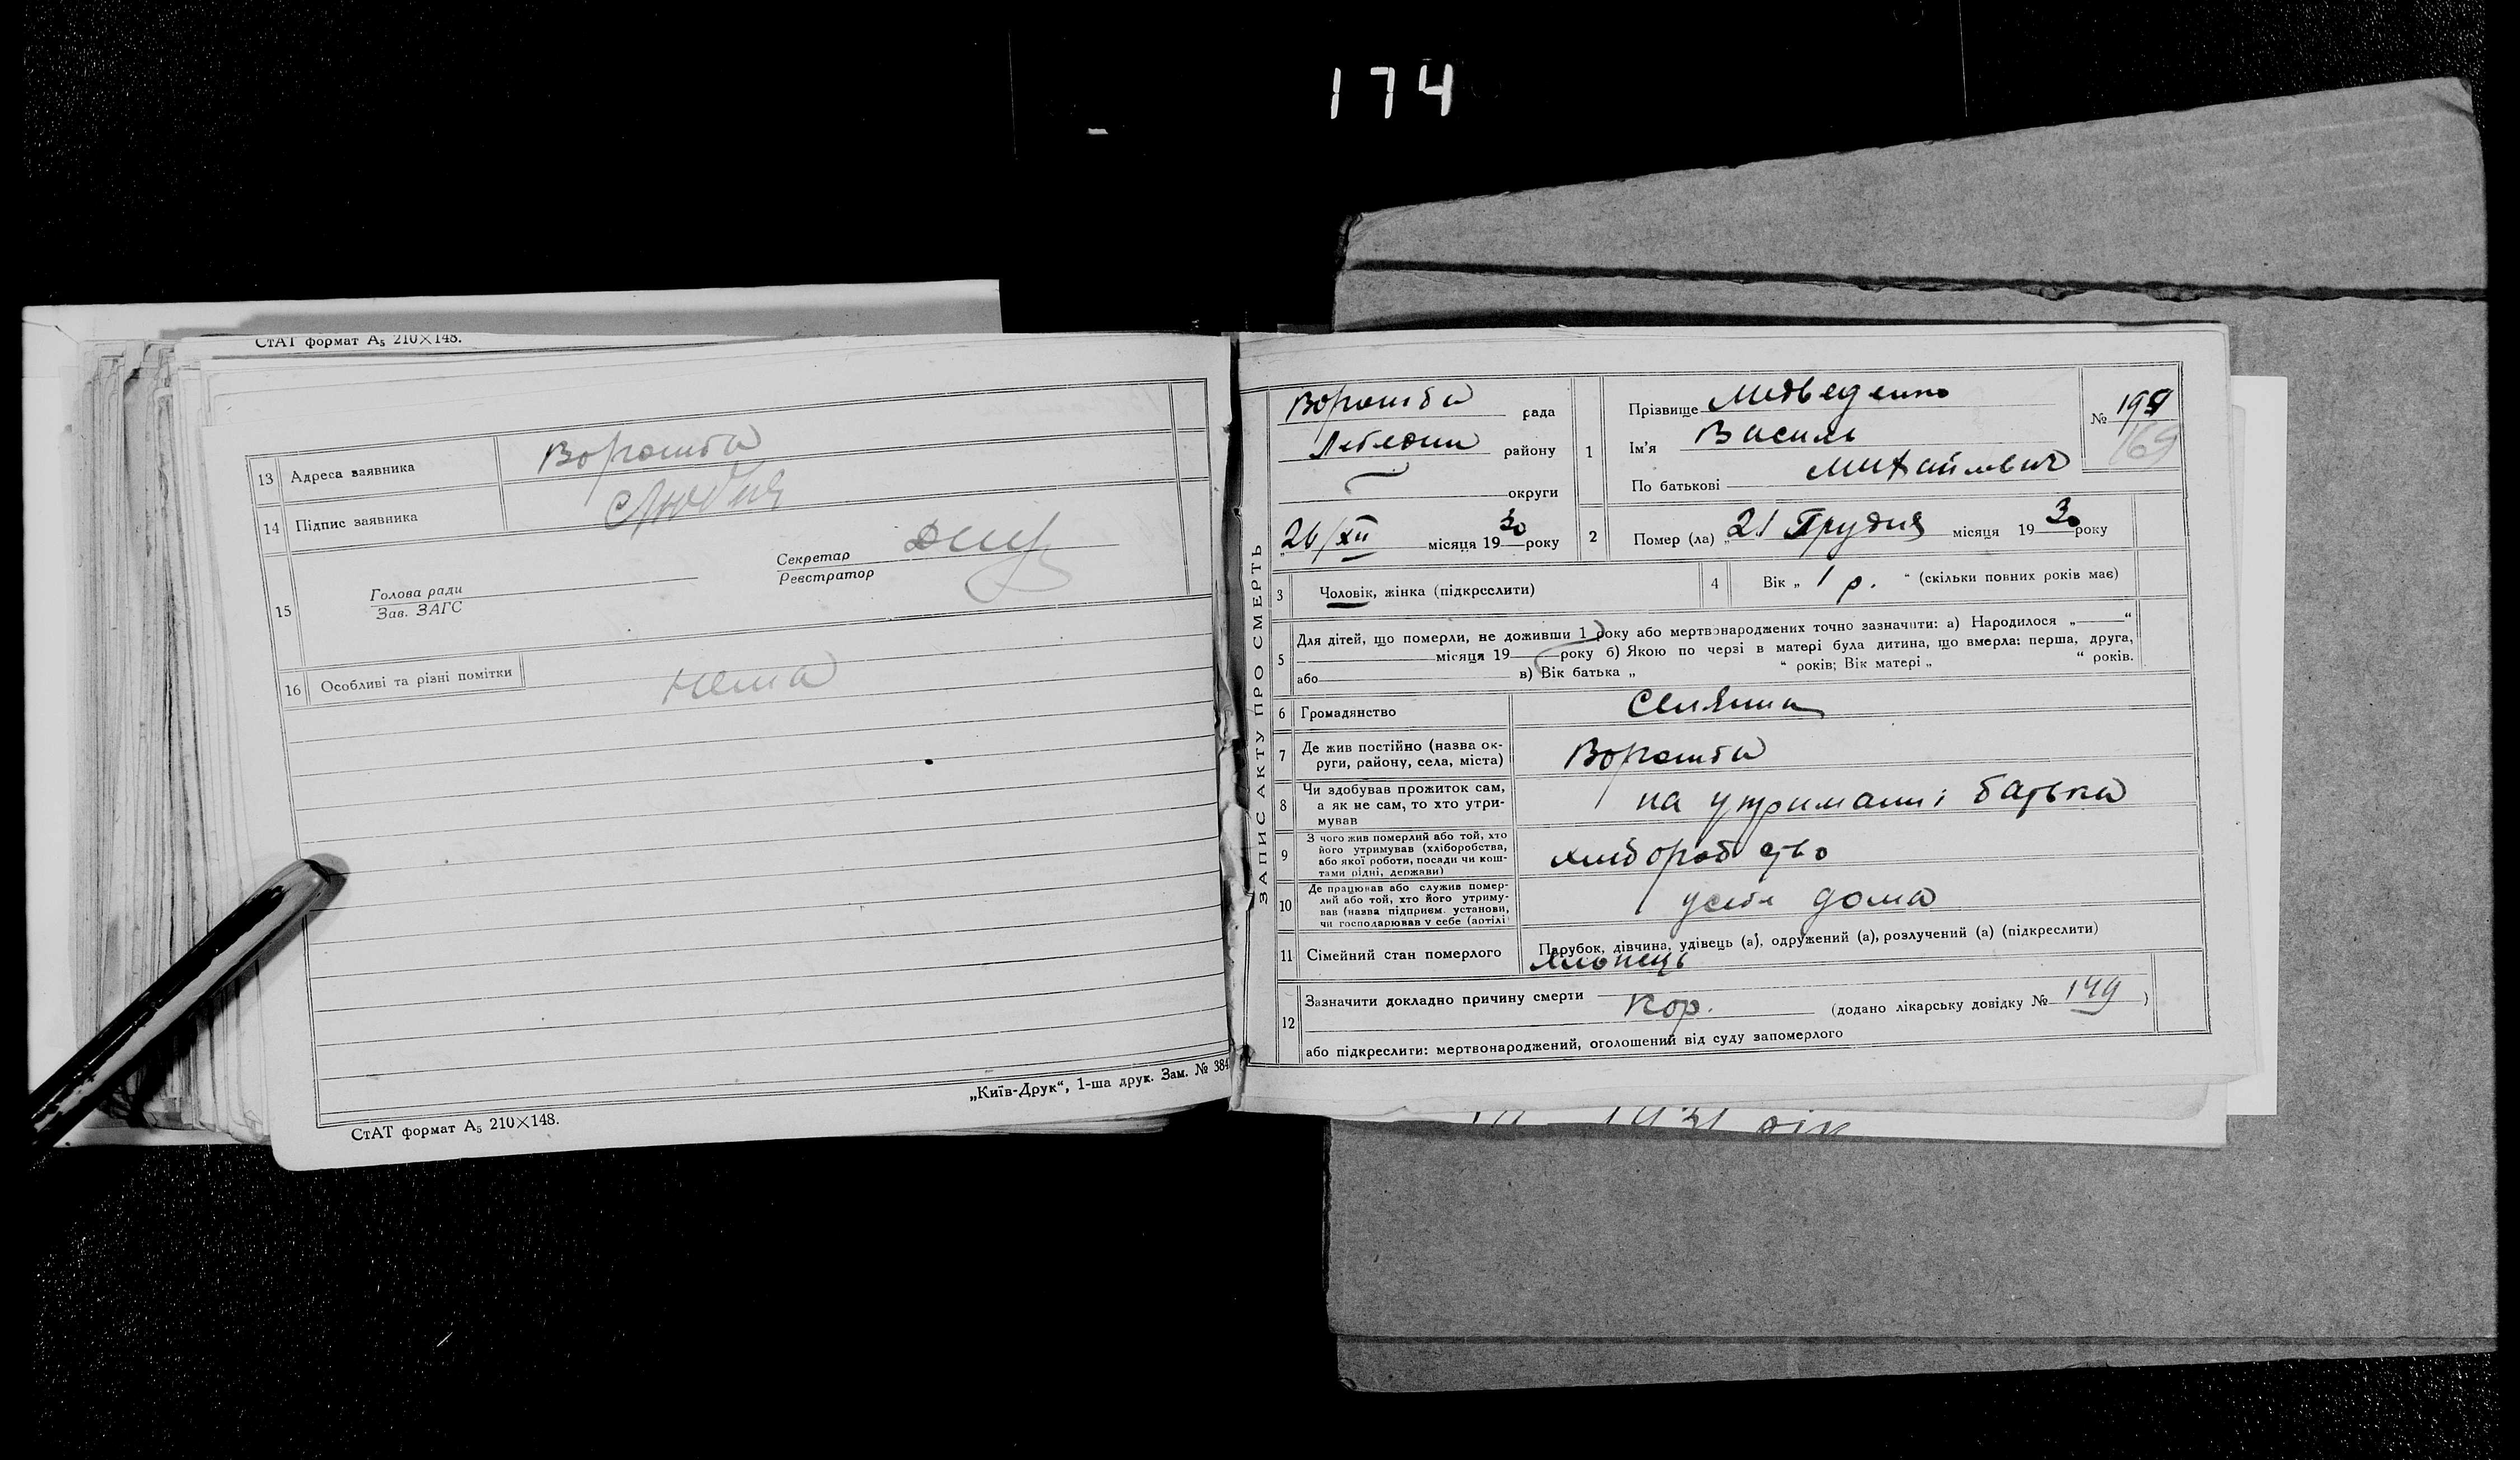 174
СтАТ формат А5 210×148.
13 Адреса заявника Ворожба
14 Підпис заявника
15 Голова ради
Зав. ЗАГС
Секретар
Реєстратор
16 Особливі та різні помітки нема
„Київ-Друк“, 1-ша друк. Зам. № 384
СтАТ формат А5 210×148.
ЗАПИС АКТУ ПРО СМЕРТЬ
Ворожба рада
Лебедин району
округи
26/XII місяця 1930 року
1 Прізвище Медведенко
Ім'я Василь
По батькові Михайлович
№ 199
169
2 Помер (ла) „21 Грудня місяця 1930 року
3 Чоловік, жінка (підкреслити)
4 Вік „ 1 р. “ (скільки повних років має)
5 Для дітей, що померли, не доживши 1 року або мертвонароджених точно зазначити: а) Народилося „ “
місяця 19 року б) Якою по черзі в матері була дитина, що вмерла: перша, друга,
або в) Вік батька „ “ років; Вік матері „ “ років.
6 Громадянство Селянин
7 Де жив постійно (назва ок-
руги, району, села, міста) Ворожба
8 Чи здобував прожиток сам,
а як не сам, то хто утри-
мував на утриманні батька
9 З чого жив померлий або той, хто
його утримував (хліборобства,
або якої роботи, посади чи кош-
тами рідні, держави) хліборобство
10 Де працював або служив помер-
лий або той, хто його утриму-
вав (назва підприєм. установи,
чи господарював у себе (артілі) у себе дома
11 Сімейний стан померлого Парубок, дівчина, удівець (а), одружений (а), розлучений (а) (підкреслити)
хлопець
12 Зазначити докладно причину смерти Кор. (додано лікарську довідку № 149 )
або підкреслити: мертвонароджений, оголошений від суду запомерлого
1931 рік